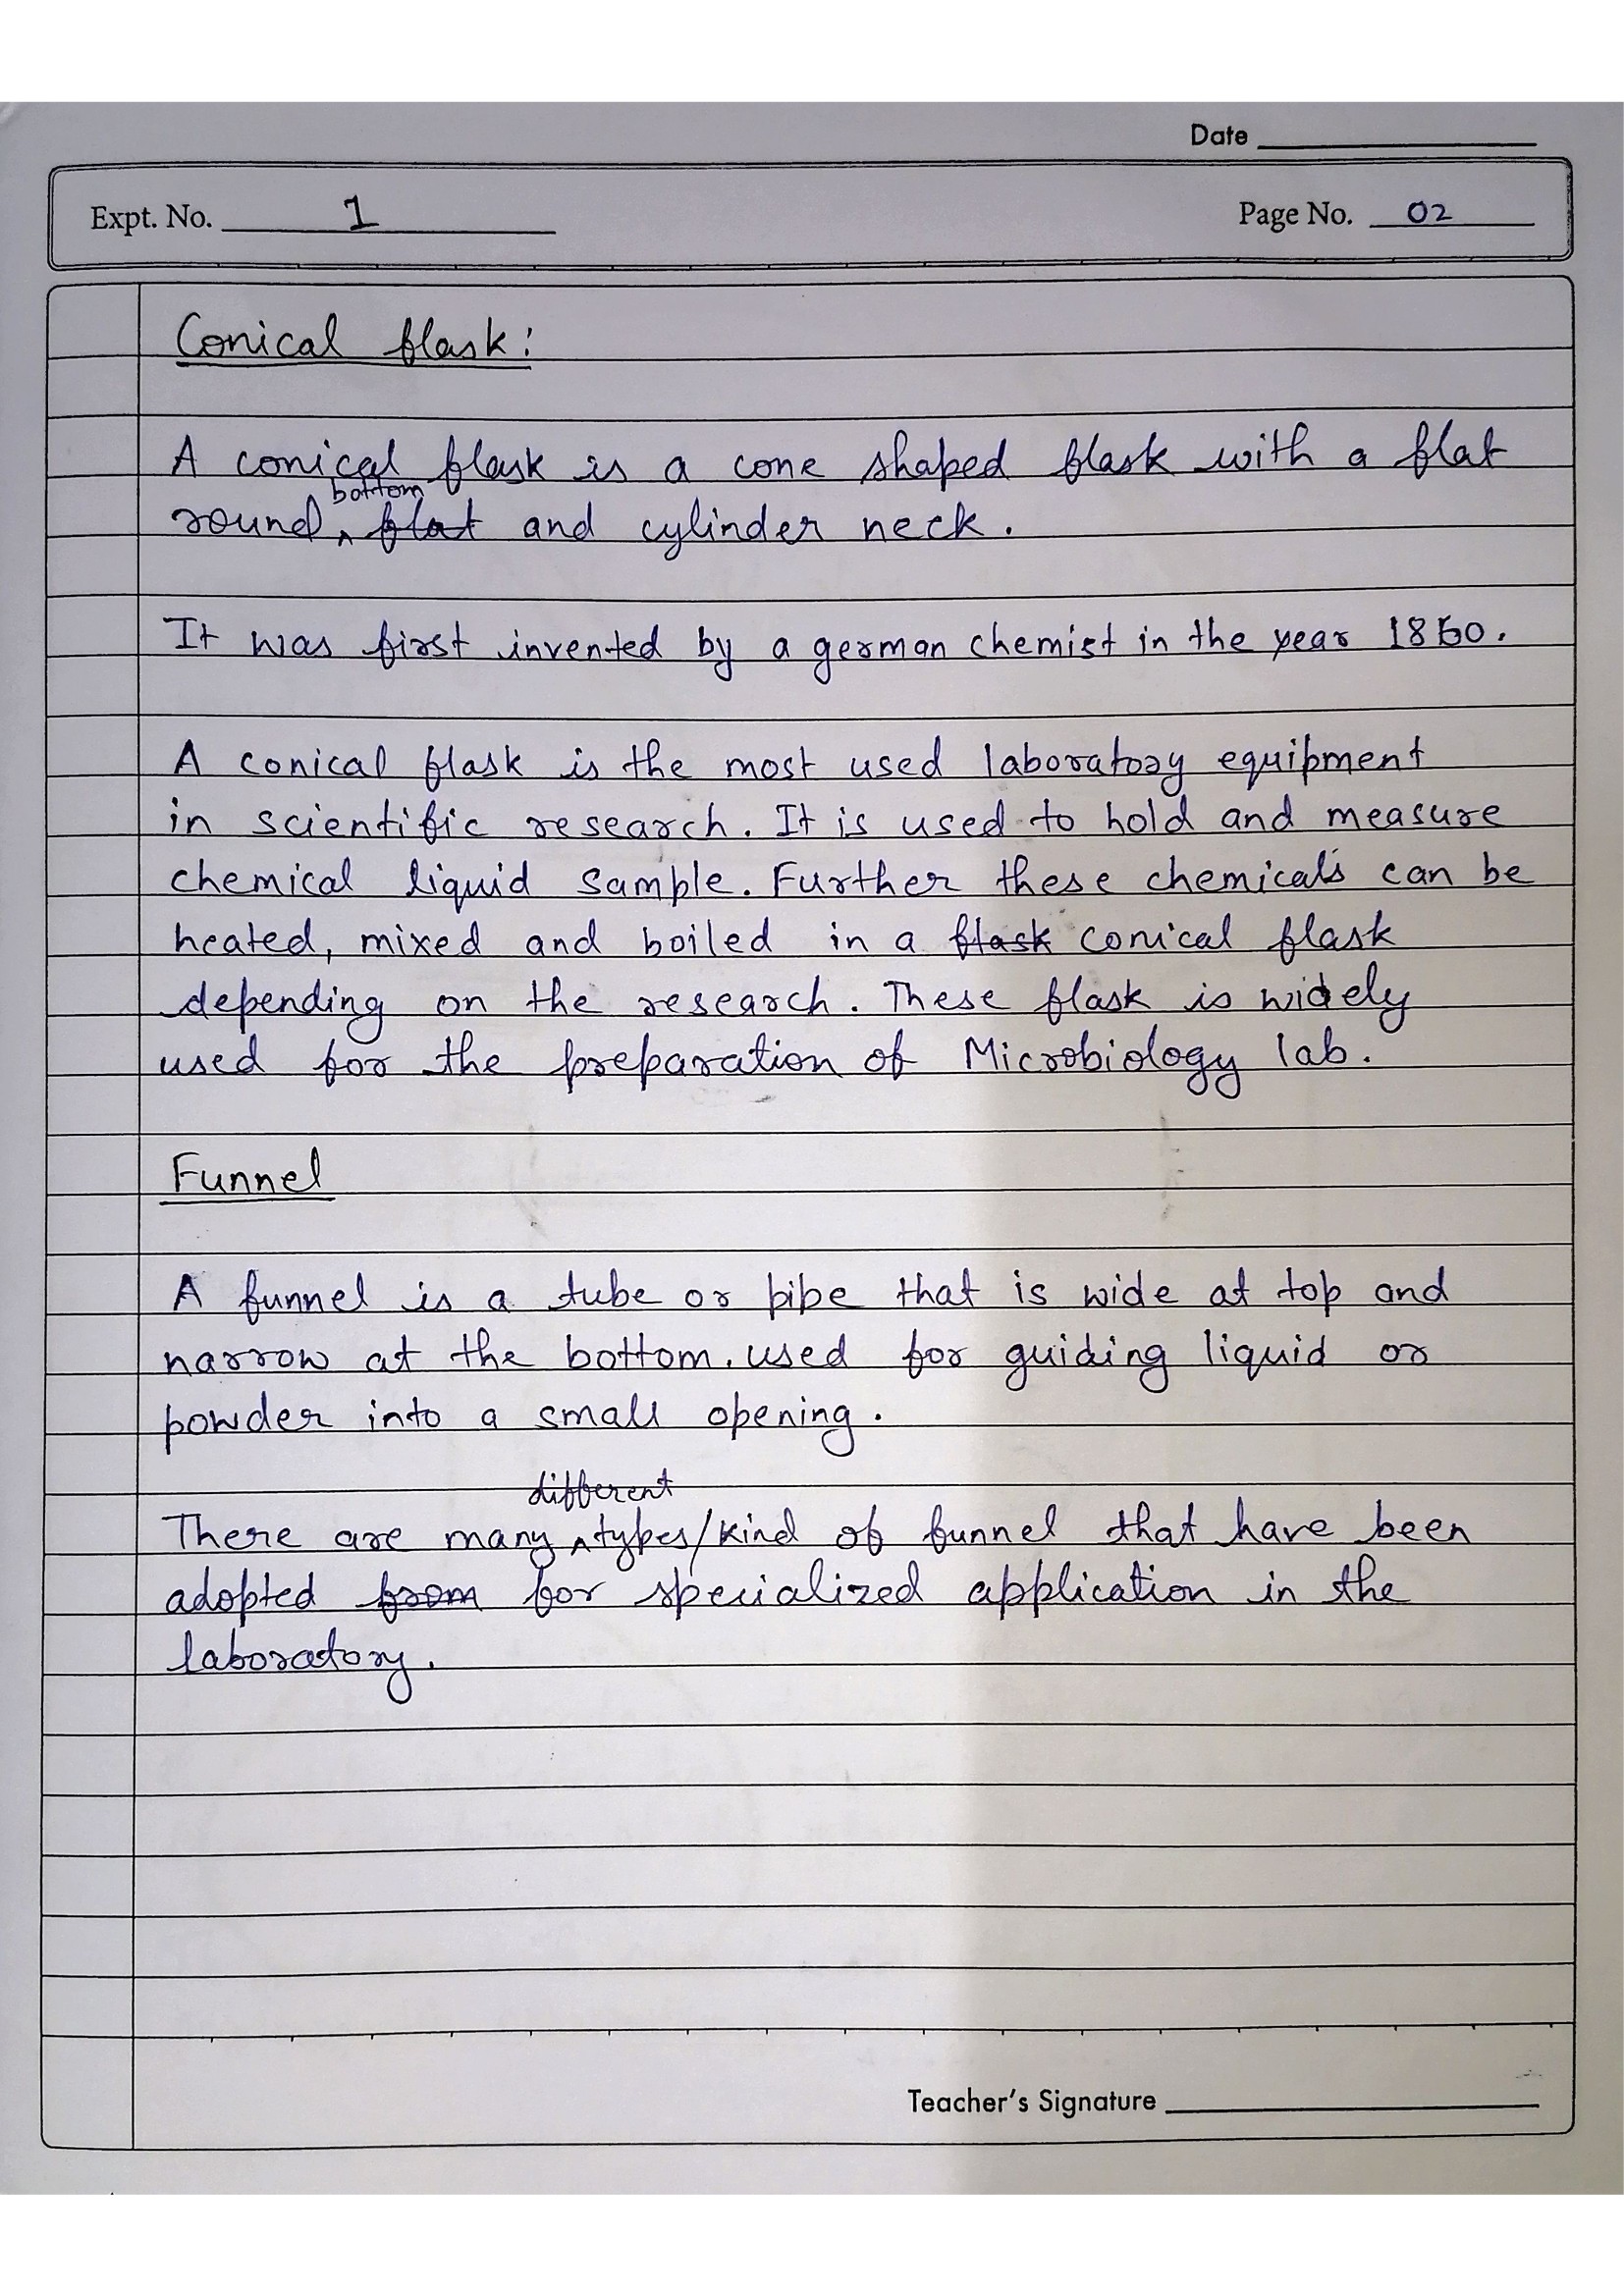 Date
Expt. No. 1
Page No. 02
Conical flask:
A conical flask is a cone shaped flask with a flat
bottom
round flat and cylinder neck.
It was first invented by a german chemist in the year 1860.
A conical flask is the most used laboratory equipment
in scientific research. It is used to hold and measure
chemical liquid sample. Further these chemicals can be
heated, mixed and boiled in a flask conical flask
depending on the research. These flask is widely
used for the preparation of Microbiology lab.
Funnel
A funnel is a tube or pipe that is wide at top and
narrow at the bottom. used for guiding liquid or
powder into a small opening.
different
There are many types/kind of funnel that have been
adopted from for specialized application in the
laboratory.
Teacher's Signature